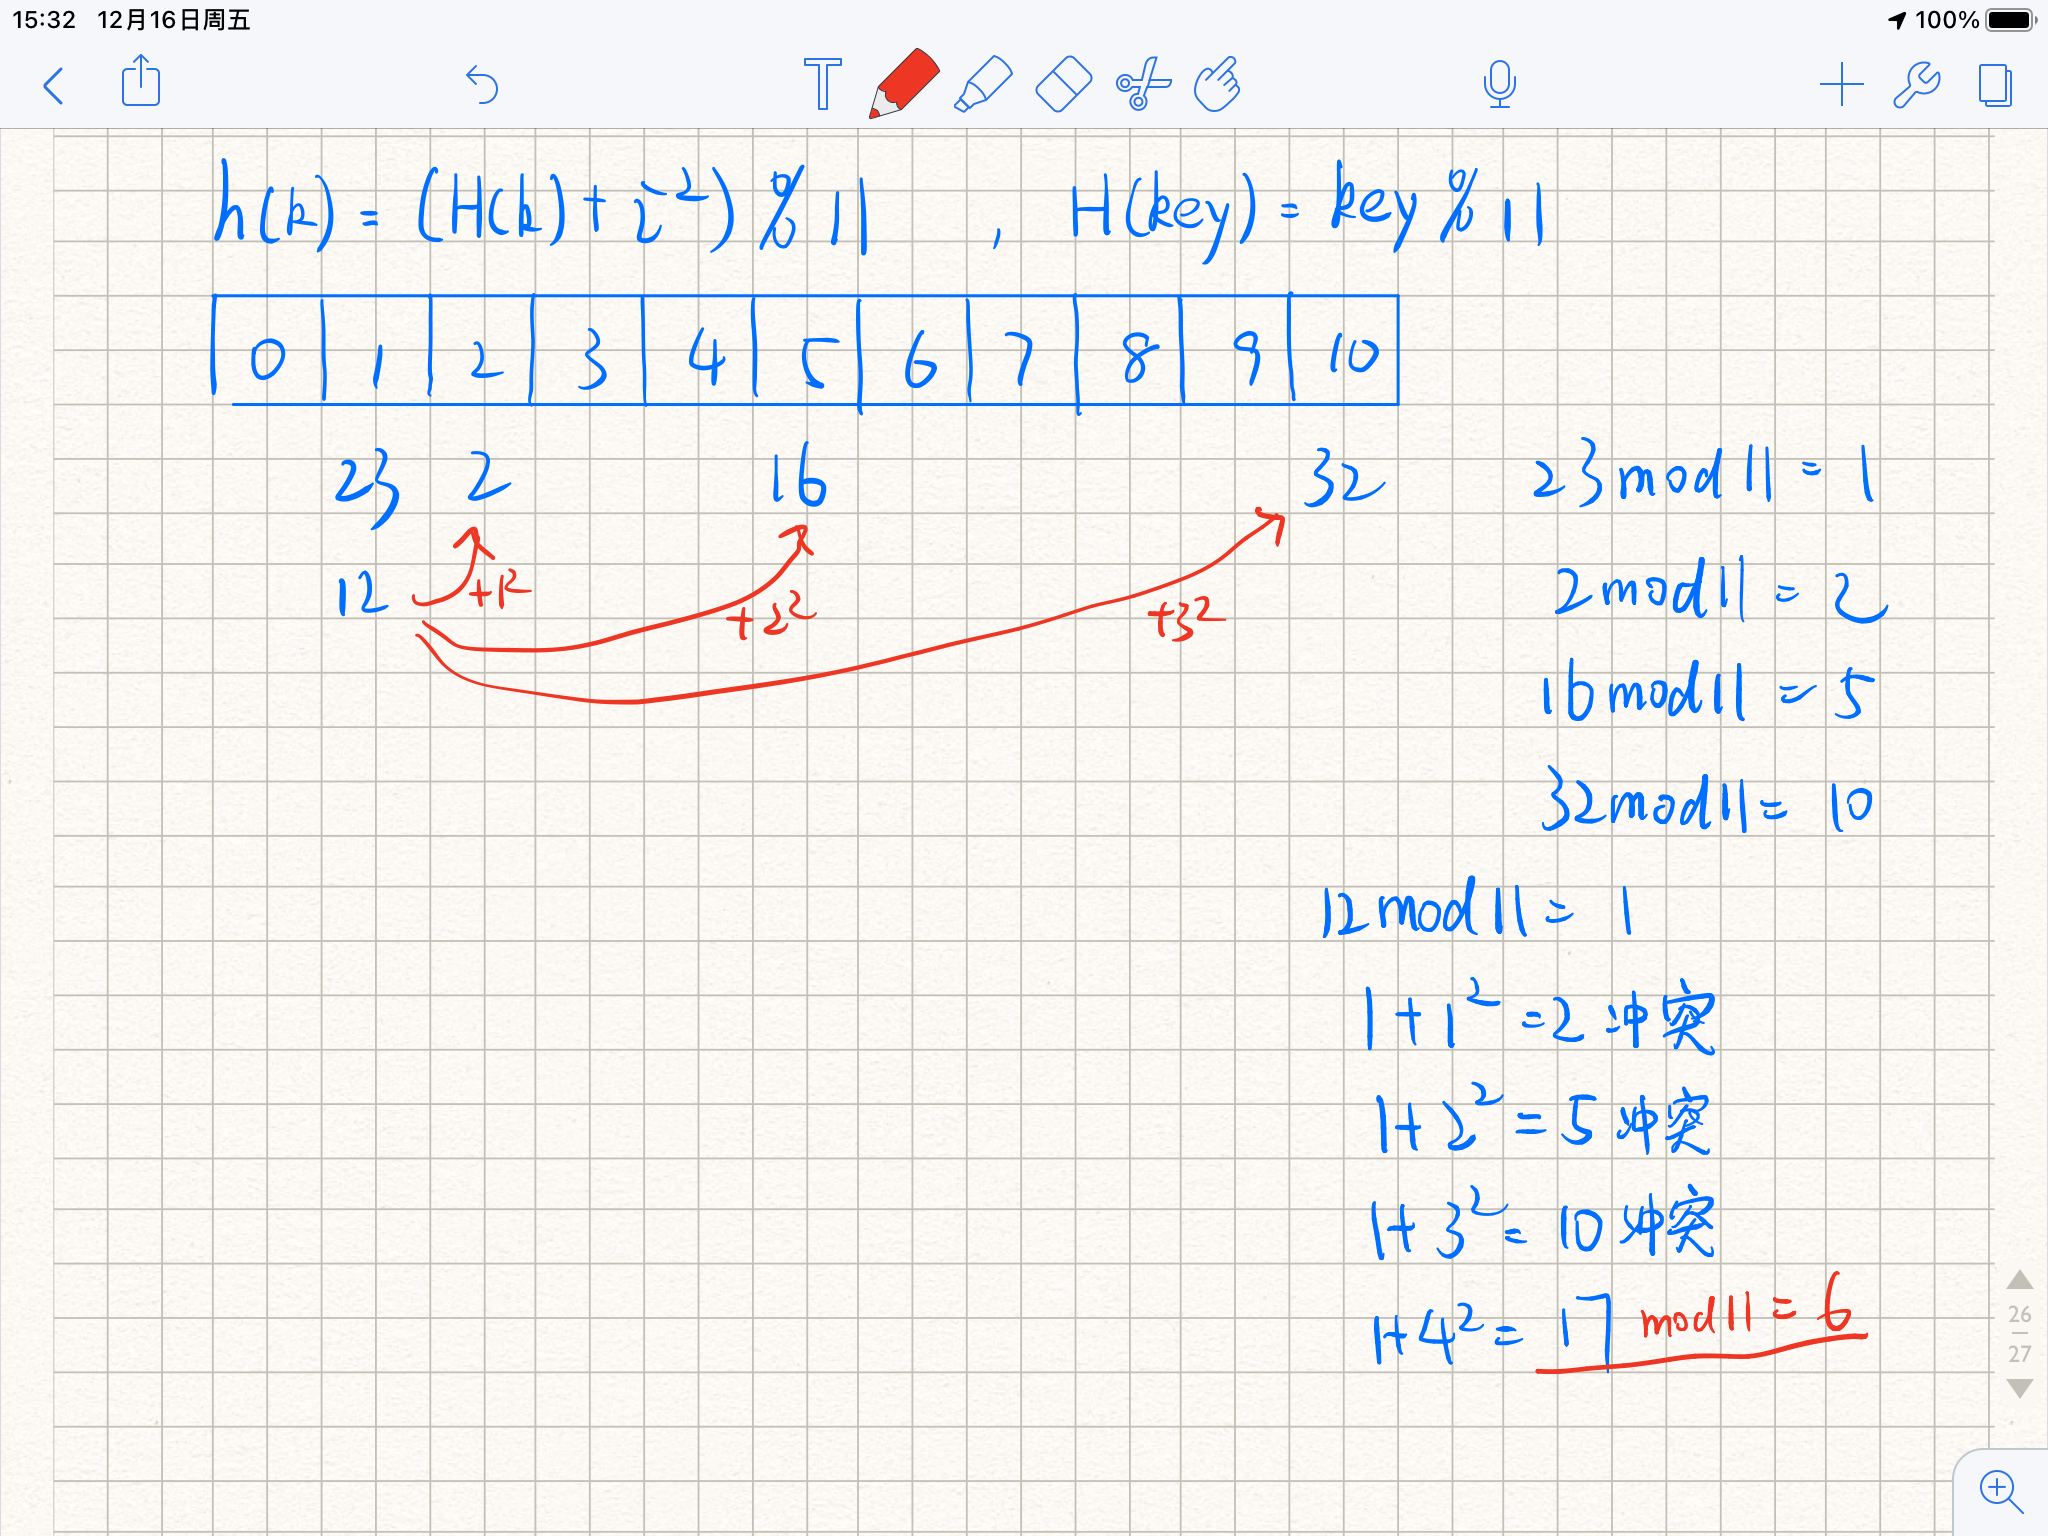 15:32 12月16日周五 100%
h(k) = (H(k) + i²) % 11 , H(key) = key % 11
0 1 2 3 4 5 6 7 8 9 10
23 2 16 32 23 mod 11 = 1
12 +1² +2² +3² 2 mod 11 = 2
16 mod 11 = 5
32 mod 11 = 10
12 mod 11 = 1
1 + 1² = 2 冲突
1 + 2² = 5 冲突
1 + 3² = 10 冲突
1 + 4² = 17 mod 11 = 6
26
27